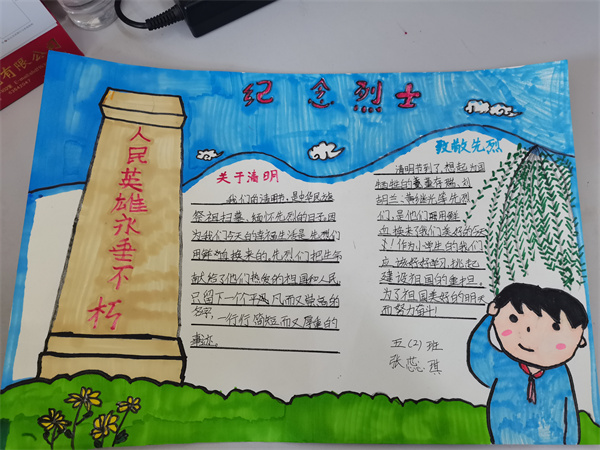 有限公司
纪念烈士
人民英雄永垂不朽
关于清明
我们的清明书,是中华民族
祭祖扫墓、缅怀先烈的日子,因
为我们今天的幸福生活是先烈们
用鲜血换来的,先烈们把生命
献给了他们热爱的祖国和人民,
只留下一个个平凡而又荣光的
名字,一行行简短而又厚重的
事迹。
致敬先烈
清明节到了,想起为国
牺牲的董存瑞、刘
胡兰、黄继光等先烈
们,是他们用用鲜
血换来了我们美好的今天
!作为小学生的我们
应该好好学习,挑起
建设祖国的重担,
为了祖国美好的明天
而努力奋斗!
五(2)班
张蕊琪